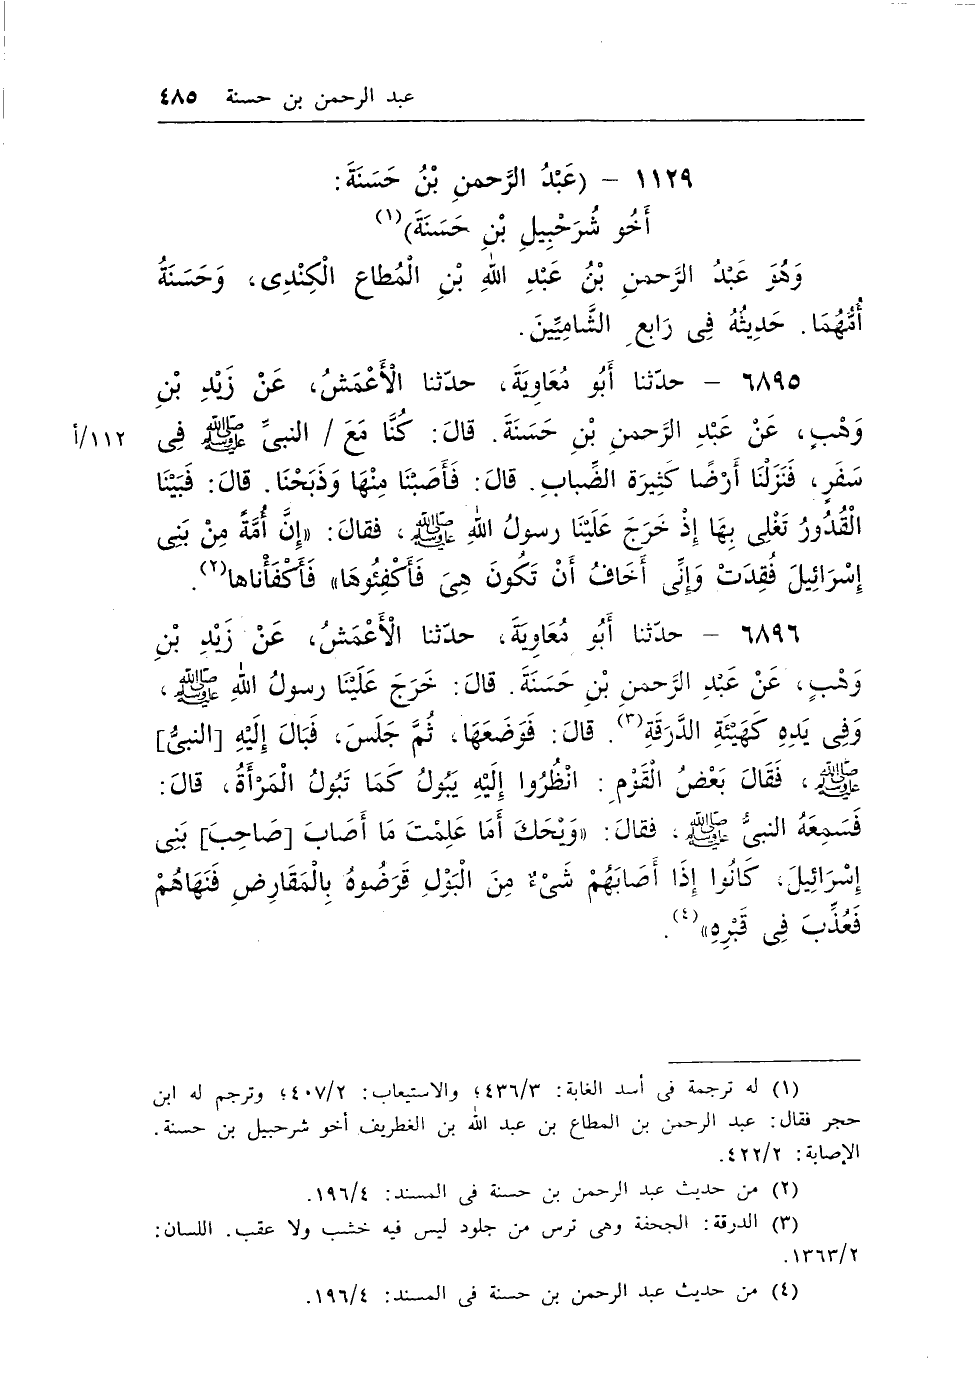 عبد الرحمن بن حسنة ٤٨٥
١١٢٩ – (عَبْدُ الرَّحمنِ بْنُ حَسَنَةَ:
أَخُو شُرَحْبِيلِ بْنِ حَسَنَةَ)(١)
وَهُوَ عَبْدُ الرَّحمنِ بْنُ عَبْدِ اللهِ بْنِ الْمُطاعِ الْكِنْدِى، وَحَسَنَةُ
أُمُّهُمَا. حَدِيثُهُ فِى رَابعِ الشَّامِيِّينَ.
٦٨٩٥ – حدّثنا أَبُو مُعَاوِيَةَ، حدّثنا الْأَعْمَشُ، عَنْ زَيْدِ بْنِ
وَهْبٍ، عَنْ عَبْدِ الرَّحمنِ بْنِ حَسَنَةَ. قالَ: كُنَّا مَعَ / النبىِّ ﷺ فِى ١١٢/أ
سَفَرٍ، فَنَزَلْنَا أَرْضًا كَثِيرَة الضِّبابِ. قالَ: فَأَصَبْنَا مِنْهَا وَذَبَحْنَا. قالَ: فَبَيْنَا
الْقُدُورُ تَغْلِى بِهَا إِذْ خَرَجَ عَلَيْنَا رسولُ اللهِ ﷺ، فقالَ: «إِنَّ أُمَّةً مِنْ بَنِى
إِسْرَائِيلَ فُقِدَتْ وَإِنِّى أَخَافُ أَنْ تَكُونَ هِىَ فَأَكْفِئُوهَا» فَأَكْفَأْناها(٢).
٦٨٩٦ – حدّثنا أَبُو مُعَاوِيَةَ، حدّثنا الْأَعْمَشُ، عَنْ زَيْدِ بْنِ
وَهْبٍ، عَنْ عَبْدِ الرَّحمنِ بْنِ حَسَنَةَ. قالَ: خَرَجَ عَلَيْنَا رسولُ اللهِ ﷺ،
وَفِى يَدِهِ كَهَيْئَةِ الدَّرَقَةِ(٣). قالَ: فَوَضَعَهَا، ثُمَّ جَلَسَ، فَبَالَ إِلَيْهِ [النبىُّ]
ﷺ، فَقَالَ بَعْضُ الْقَوْمِ: انْظُرُوا إِلَيْهِ يَبُولُ كَمَا تَبُولُ الْمَرْأَةُ، قالَ:
فَسَمِعَهُ النبىُّ ﷺ، فقالَ: «وَيْحَكَ أَمَا عَلِمْتَ مَا أَصَابَ [صَاحِبَ] بَنِى
إِسْرَائِيلَ، كَانُوا إِذَا أَصَابَهُمْ شَىْءٌ مِنَ الْبَوْلِ قَرَضُوهُ بِالْمَقَارِضِ فَنَهَاهُمْ
فَعُذِّبَ فِى قَبْرِهِ»(٤).
(١) له ترجمة فى أسد الغابة: ٤٣٦/٣؛ والاستيعاب: ٤٠٧/٢؛ وترجم له ابن
حجر فقال: عبد الرحمن بن المطاع بن عبد الله بن الغطريف أخو شرحبيل بن حسنة.
الإصابة: ٤٢٢/٢.
(٢) من حديث عبد الرحمن بن حسنة فى المسند: ١٩٦/٤.
(٣) الدرقة: الجحفة وهى ترس من جلود ليس فيه خشب ولا عقب. اللسان:
١٣٦٣/٢.
(٤) من حديث عبد الرحمن بن حسنة فى المسند: ١٩٦/٤.